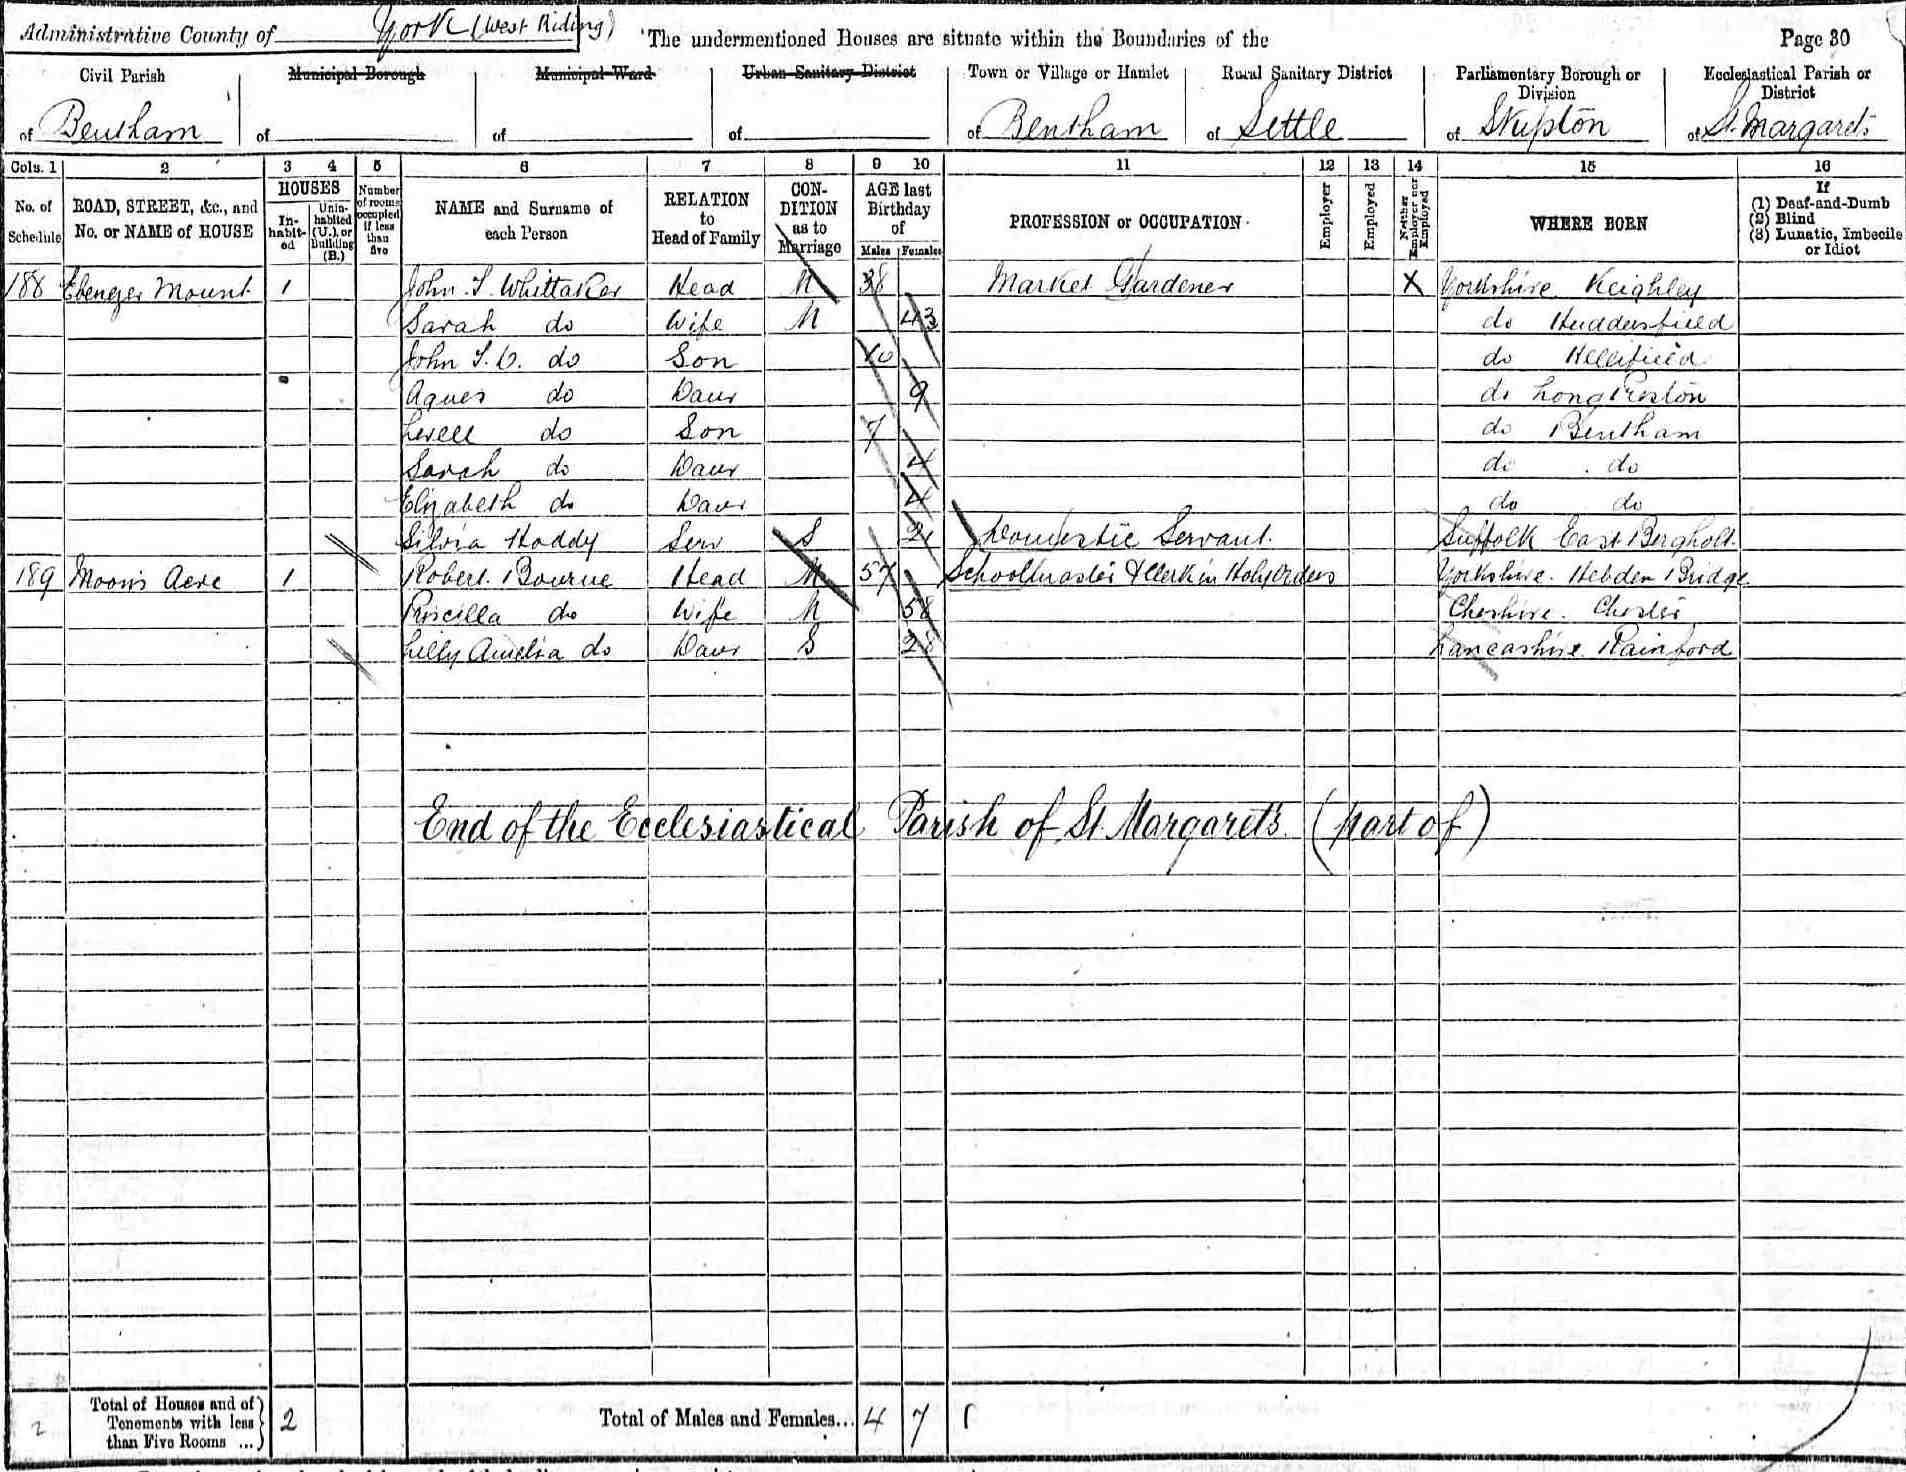 Administrative County of York (West Riding) The undermentioned Houses are situate within the Boundaries of the Page 30
Civil Parish Municipal Borough Municipal Ward Urban Sanitary District Town or Village or Hamlet Rural Sanitary District Parliamentary Borough or Division Ecclesiastical Parish or District
of Bentham of of of of Bentham of Settle of Skipton of St. Margarets
Cols. 1 2 3 4 5 6 7 8 9 10 11 12 13 14 15 16
No. of Schedule ROAD, STREET, &c., and No. or NAME of HOUSE HOUSES In-habit-ed Unin-habited (U.), or Building (B.) Number of rooms occupied if less than five NAME and Surname of each Person RELATION to Head of Family CON-DITION as to Marriage AGE last Birthday of Males Females PROFESSION or OCCUPATION Employer Employed Neither Employer nor Employed WHERE BORN If (1) Deaf-and-Dumb (2) Blind (3) Lunatic, Imbecile or Idiot
188 Ebenezer Mount 1 John S. Whittaker Head M 38 Market Gardener X Yorkshire Keighley
Sarah do Wife M 43 do Huddersfield
John S. do Son 10 do Hellifield
Agnes do Daur 9 do Long Preston
do Son 7 do Bentham
Sarah do Daur 4 do do
Elizabeth do Daur 4 do do
Silvia Hoddy Serv S 21 Domestic Servant Suffolk East Bergholt
189 Moons Acre 1 Robert Bourne Head M 57 Schoolmaster & Clerk in Holy Orders Yorkshire Hebden Bridge
Priscilla do Wife M 58 Cheshire Chester
Lilly Amelia do Daur S 28 Lancashire Rainford
End of the Ecclesiastical Parish of St. Margaret's (part of)
2 Total of Houses and of Tenements with less than Five Rooms ... 2 Total of Males and Females... 4 7